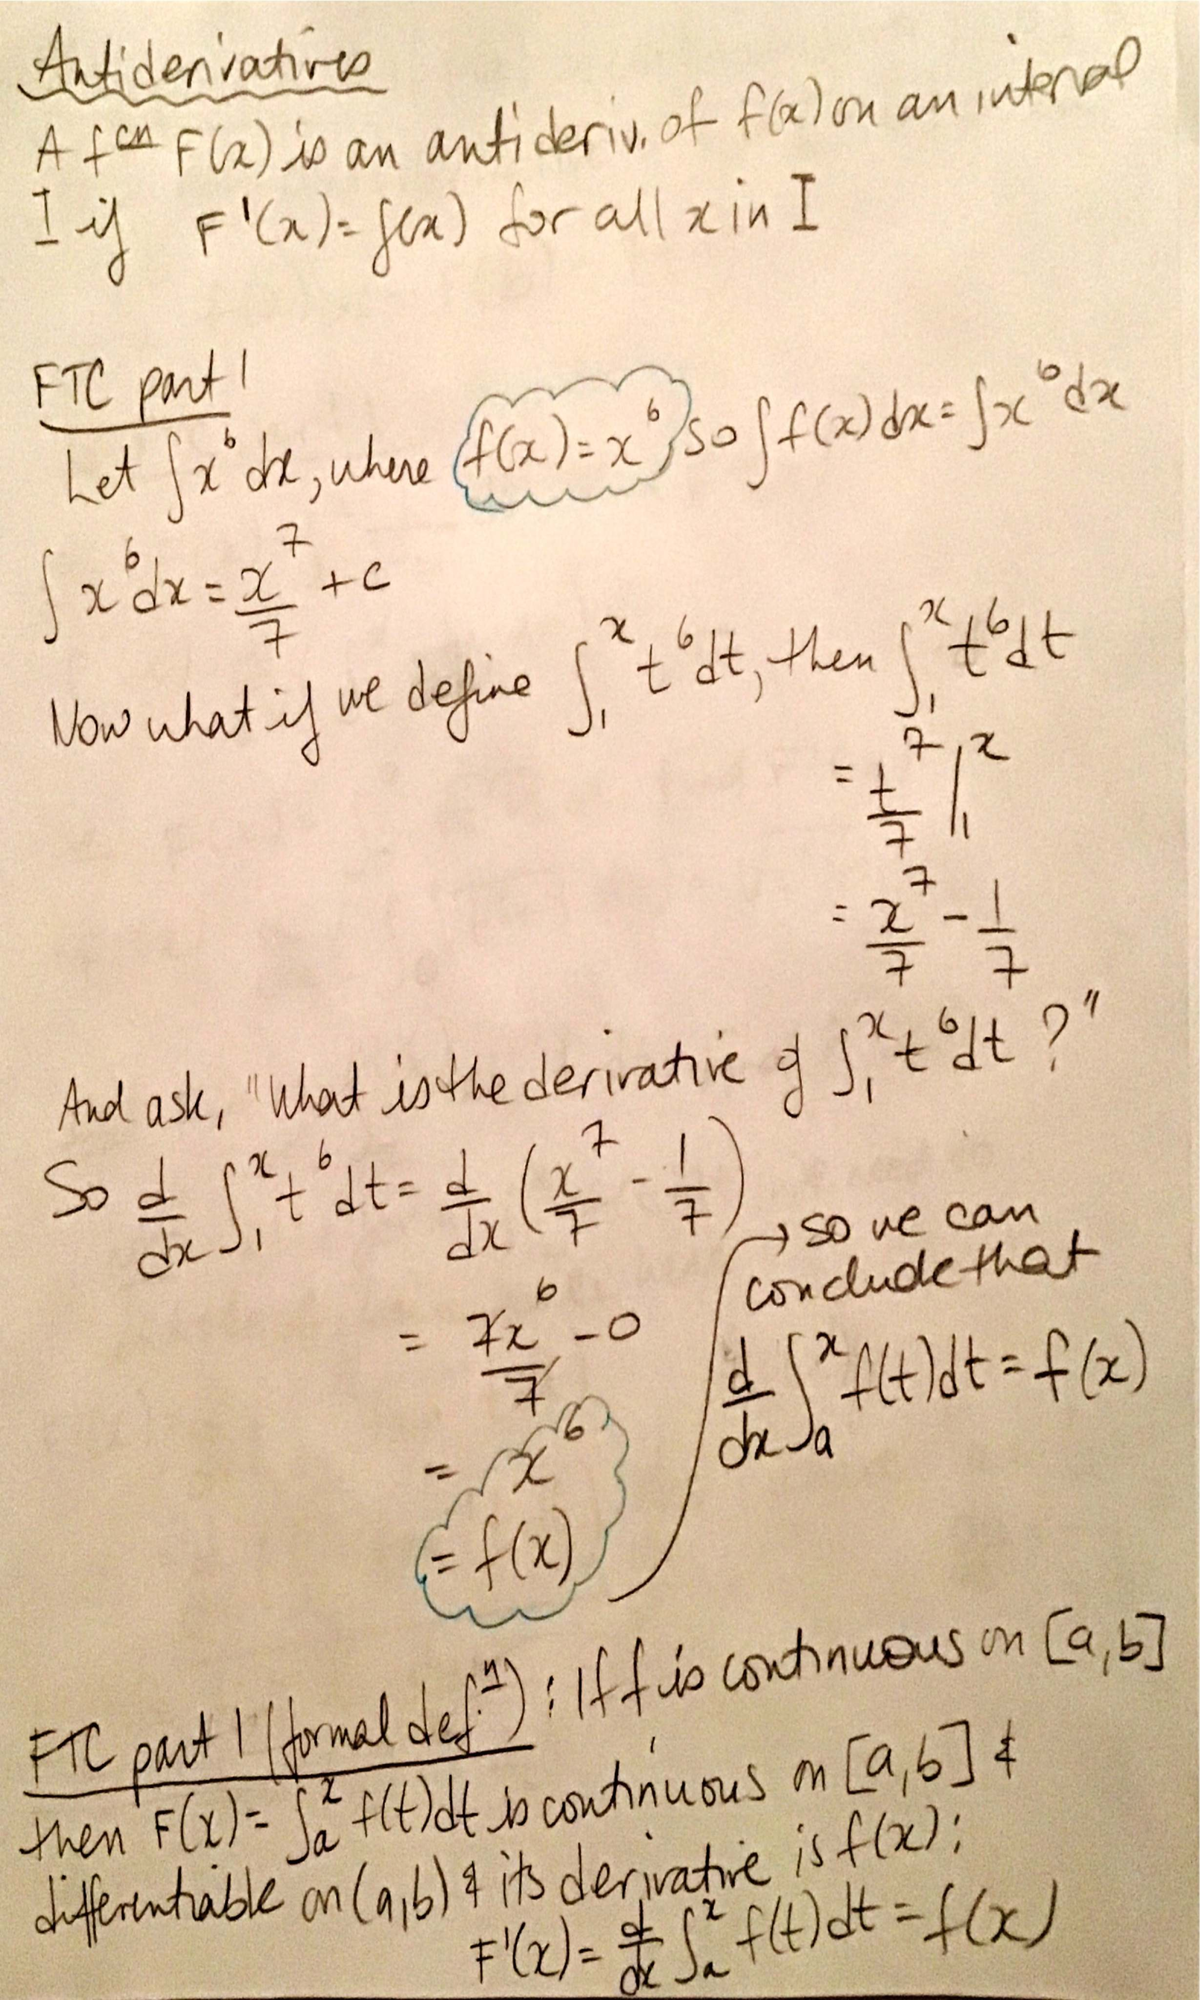 Antiderivatives
A fcn F(x) is an antideriv. of f(x) on an interval
I if F'(x) = f(x) for all x in I
FTC part 1
Let ∫x⁶dx, where f(x) = x⁶ so ∫f(x)dx = ∫x⁶dx
∫x⁶dx = x⁷/7 + c
Now what if we define ∫₁ˣ t⁶dt, then ∫₁ˣ t⁶dt
= t⁷/7 |₁ˣ
= x⁷/7 - 1/7
And ask, "What is the derivative of ∫₁ˣ t⁶dt ?"
So d/dx ∫₁ˣ t⁶dt = d/dx (x⁷/7 - 1/7)
= 7x⁶/7 - 0
= x⁶
= f(x)
→ so we can
conclude that
d/dx ∫ₐˣ f(t)dt = f(x)
FTC part 1 (formal def.n) : If f is continuous on [a,b]
then F(x) = ∫ₐˣ f(t)dt is continuous on [a,b] &
differentiable on (a,b) & its derivative is f(x);
F'(x) = d/dx ∫ₐˣ f(t)dt = f(x)